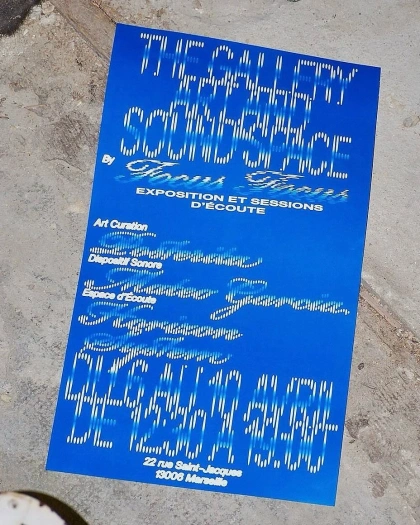 THE GALLERY
ART AND
SOUND SPACE
By
EXPOSITION ET SESSIONS
D'ÉCOUTE
Art Curation
Dispositif Sonore
Garcia
Espace d'Écoute
Horizon
DU 6 AU 10 AVRIL
DE 12:30 A 19:00
22 rue Saint-Jacques
13006 Marseille